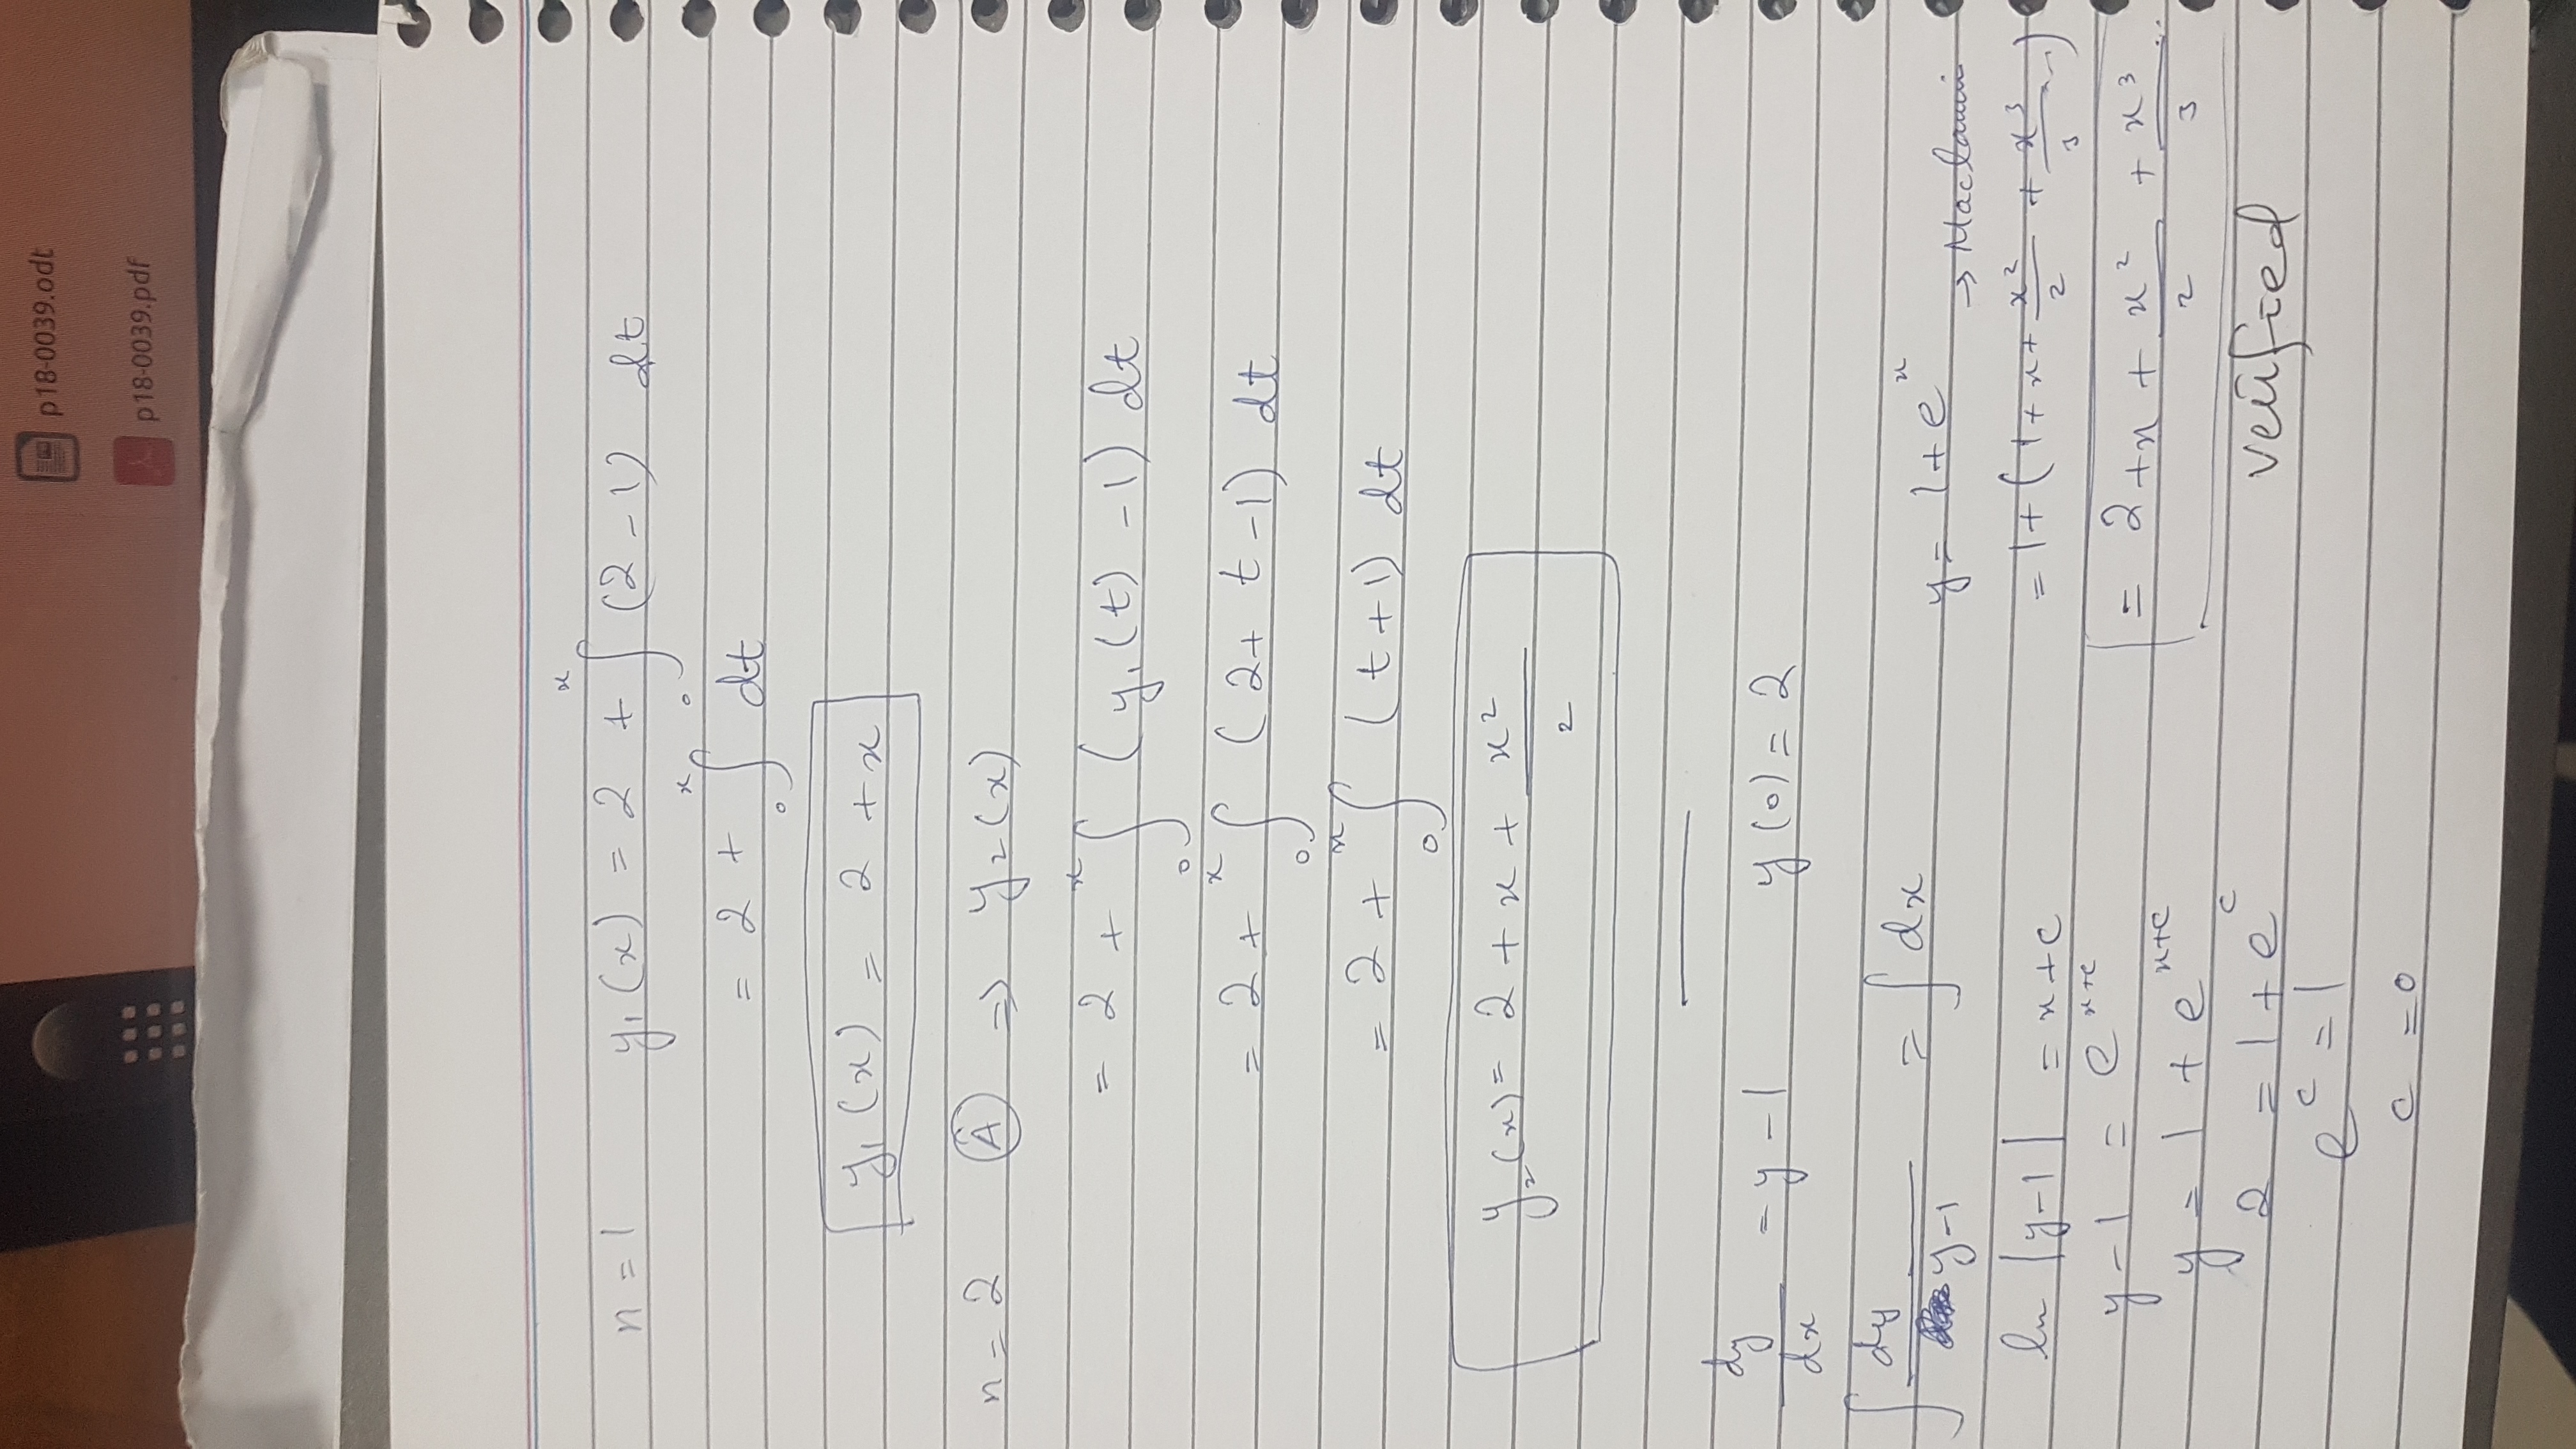 p18-0039.odt
p18-0039.pdf
n = 1 y₁(x) = 2 + ∫₀ˣ (2 - 1) dt
= 2 + ∫₀ˣ dt
y₁(x) = 2 + x
n = 2 Ⓐ ⇒ y₂(x)
= 2 + ∫₀ˣ (y₁(t) - 1) dt
= 2 + ∫₀ˣ (2 + t - 1) dt
= 2 + ∫₀ˣ (t + 1) dt
y₂(x) = 2 + x + x²/2
dy/dx = y - 1 y(0) = 2
∫ dy/(y-1) = ∫ dx
ln |y-1| = x + c
y - 1 = e^(x+c)
y = 1 + e^(x+c)
2 = 1 + e^c
e^c = 1
c = 0
y = 1 + e^x → Maclaurin
= 1 + (1 + x + x²/2 + x³/3 ...)
= 2 + x + x²/2 + x³/3 ...
verified